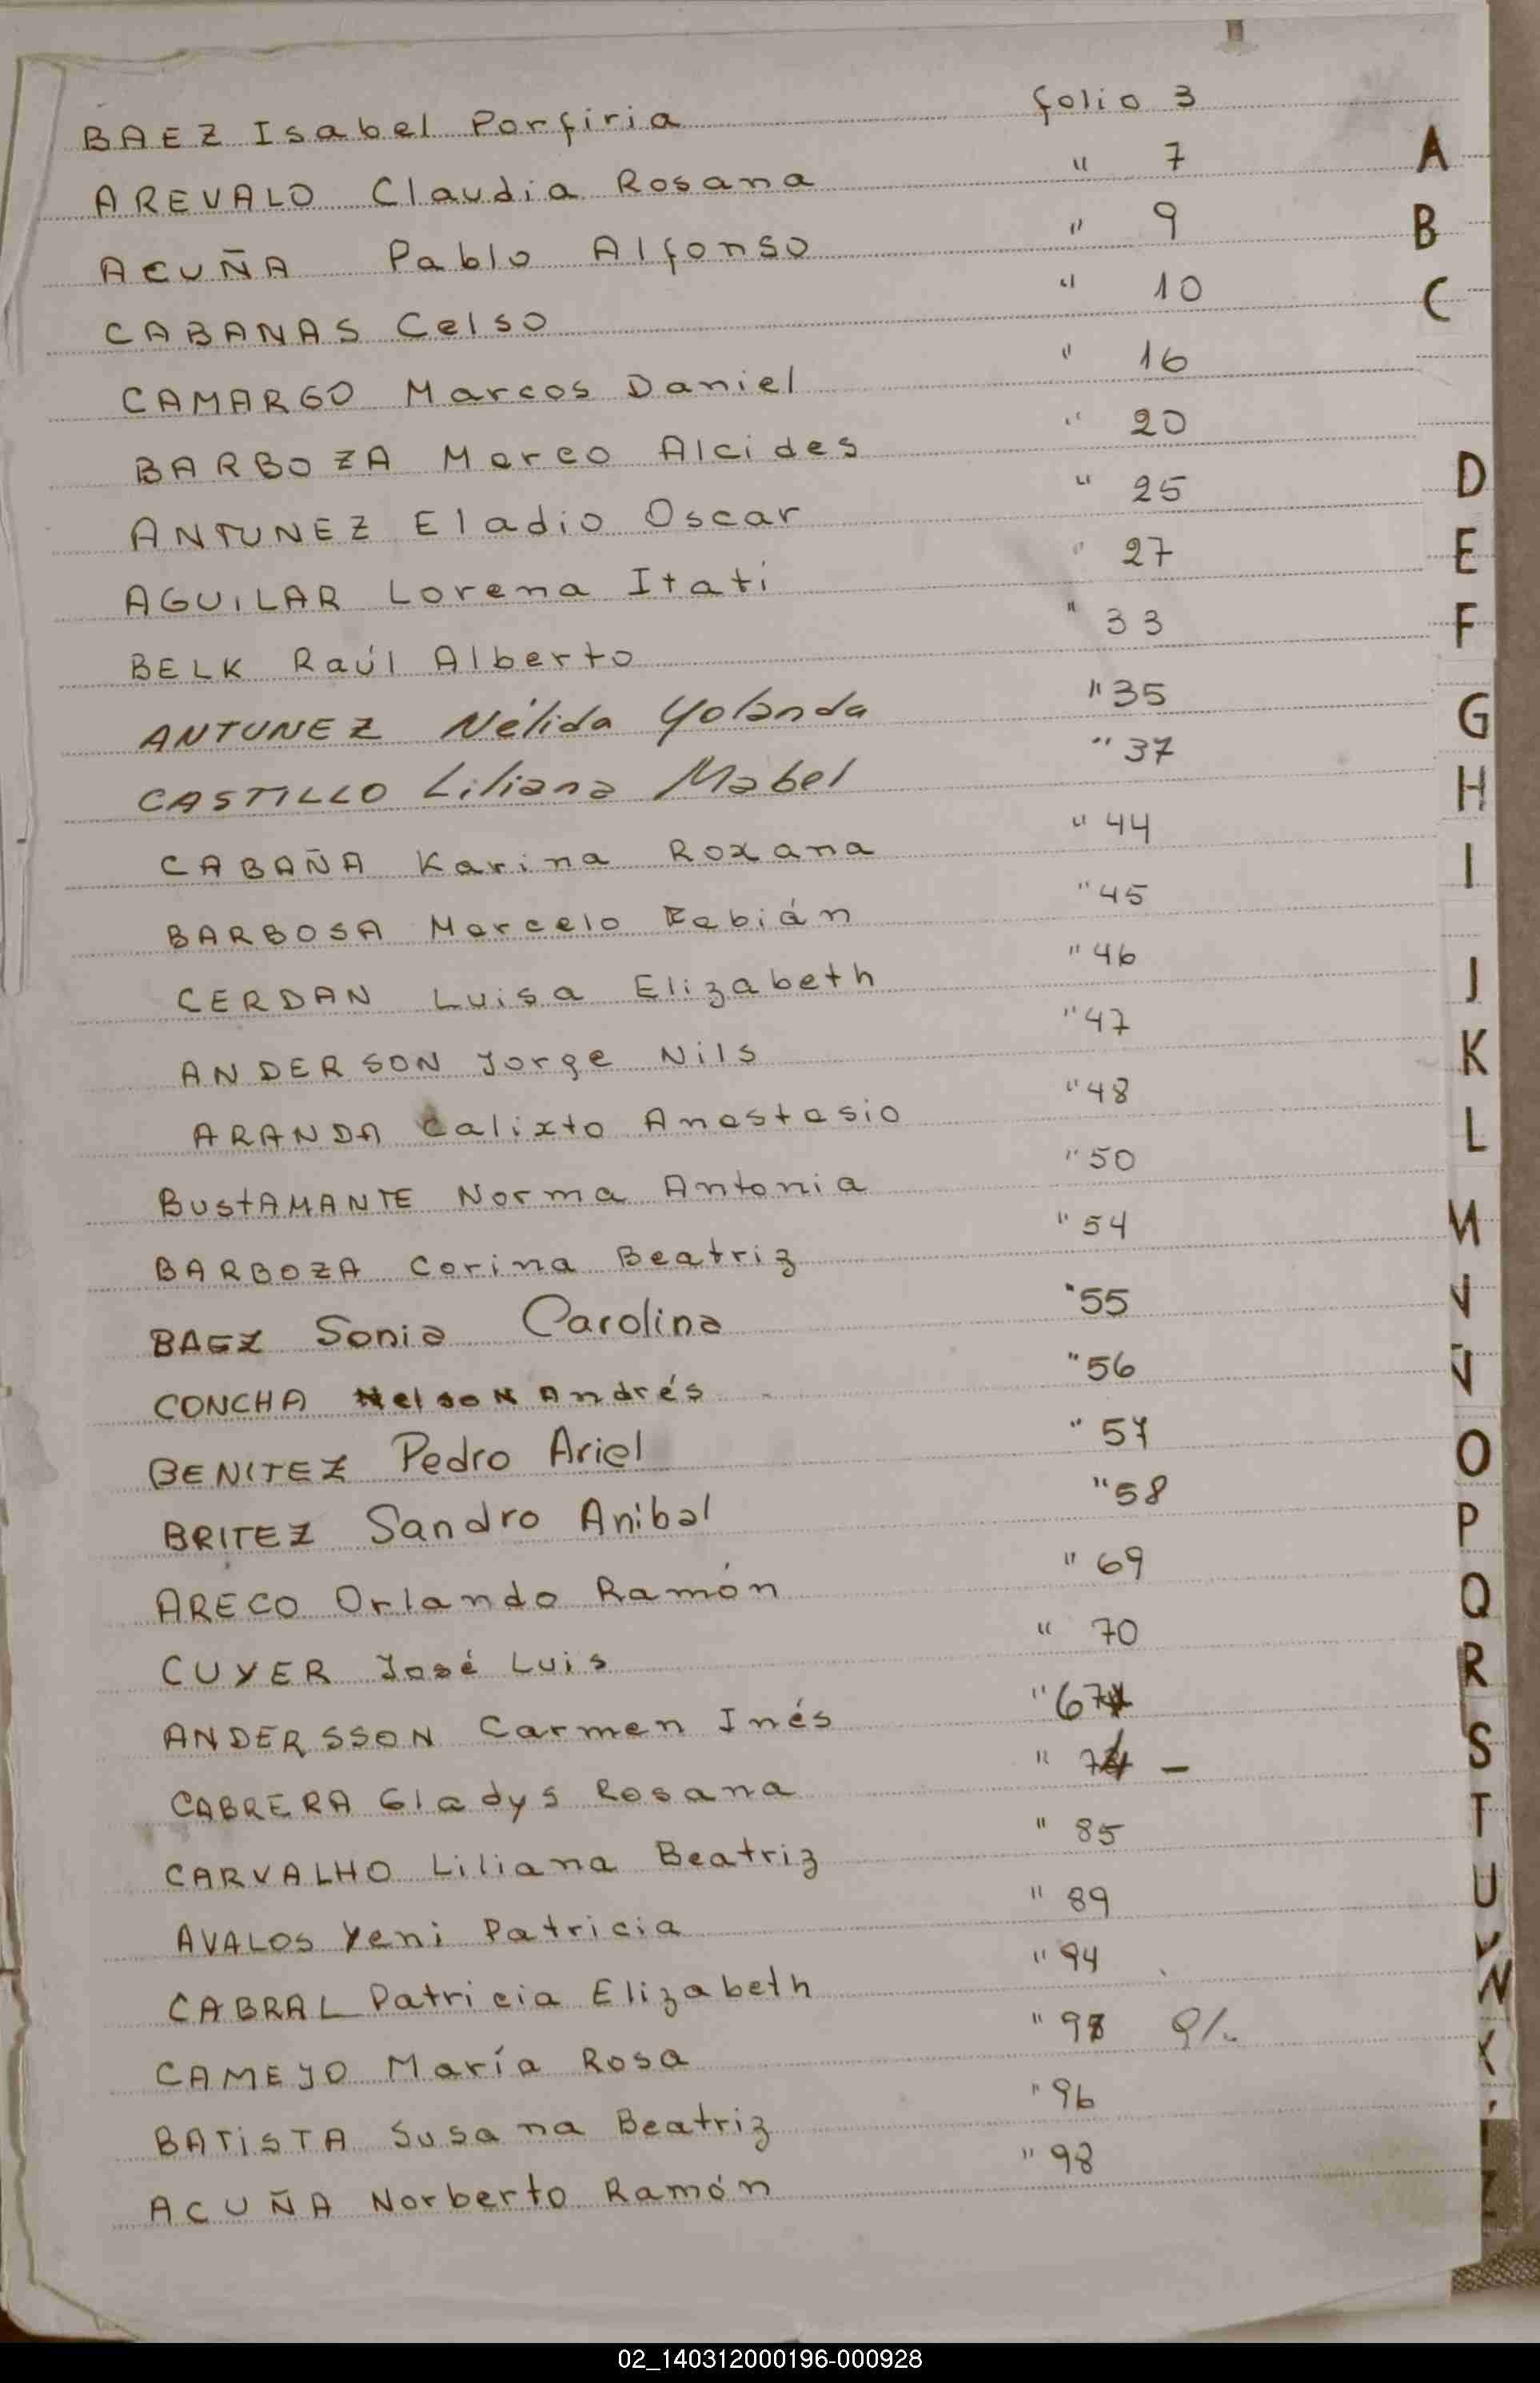 BAEZ Isabel Porfiria folio 3
AREVALO Claudia Rosana " 7
ACUÑA Pablo Alfonso " 9
CABANAS Celso " 10
CAMARGO Marcos Daniel " 16
BARBOZA Marco Alcides " 20
ANTUNEZ Eladio Oscar " 25
AGUILAR Lorena Itatí " 27
BELK Raúl Alberto " 33
ANTUNEZ Nélida Yolanda " 35
CASTILLO Liliana Mabel " 37
CABAÑA Karina Roxana " 44
BARBOSA Marcelo Fabián " 45
CERDAN Luisa Elizabeth " 46
ANDERSON Jorge Nils " 47
ARANDA Calixto Anastasio " 48
BUStAMANTE Norma Antonia " 50
BARBOZA Corina Beatriz " 54
BAEZ Sonia Carolina " 55
CONCHA Nelson Andrés " 56
BENITEZ Pedro Ariel " 57
BRITEZ Sandro Anibal " 58
ARECO Orlando Ramón " 69
CUYER José Luis " 70
ANDERSSON Carmen Inés "
CABRERA Gladys Rosana " 74 -
CARVALHO Liliana Beatriz " 85
AVALOS Yeni Patricia " 89
CABRAL Patricia Elizabeth " 94
CAMEJO María Rosa "
BATiSTA Susana Beatriz " 96
ACUÑA Norberto Ramón " 98
A
B
C
D
E
F
G
H
I
J
K
L
M
N
Ñ
O
P
Q
R
S
T
U
V
W
X
Z
02_140312000196-000928